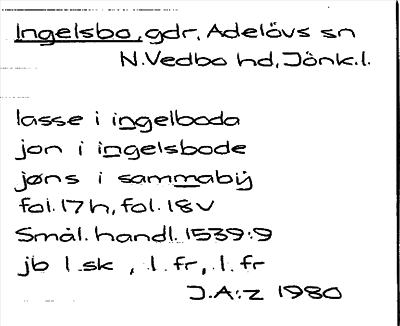 Ingelsbo, gdr, Adelövs sn
N.Vedbo hd, Jönk.l.
lasse i ingelboda
jon i ingelsbode
jøns i sammabÿ
fol.17h, fol.18v
Smål.handl.1539:9
jb 1 sk , 1 fr, 1 fr
J.A:z 1980